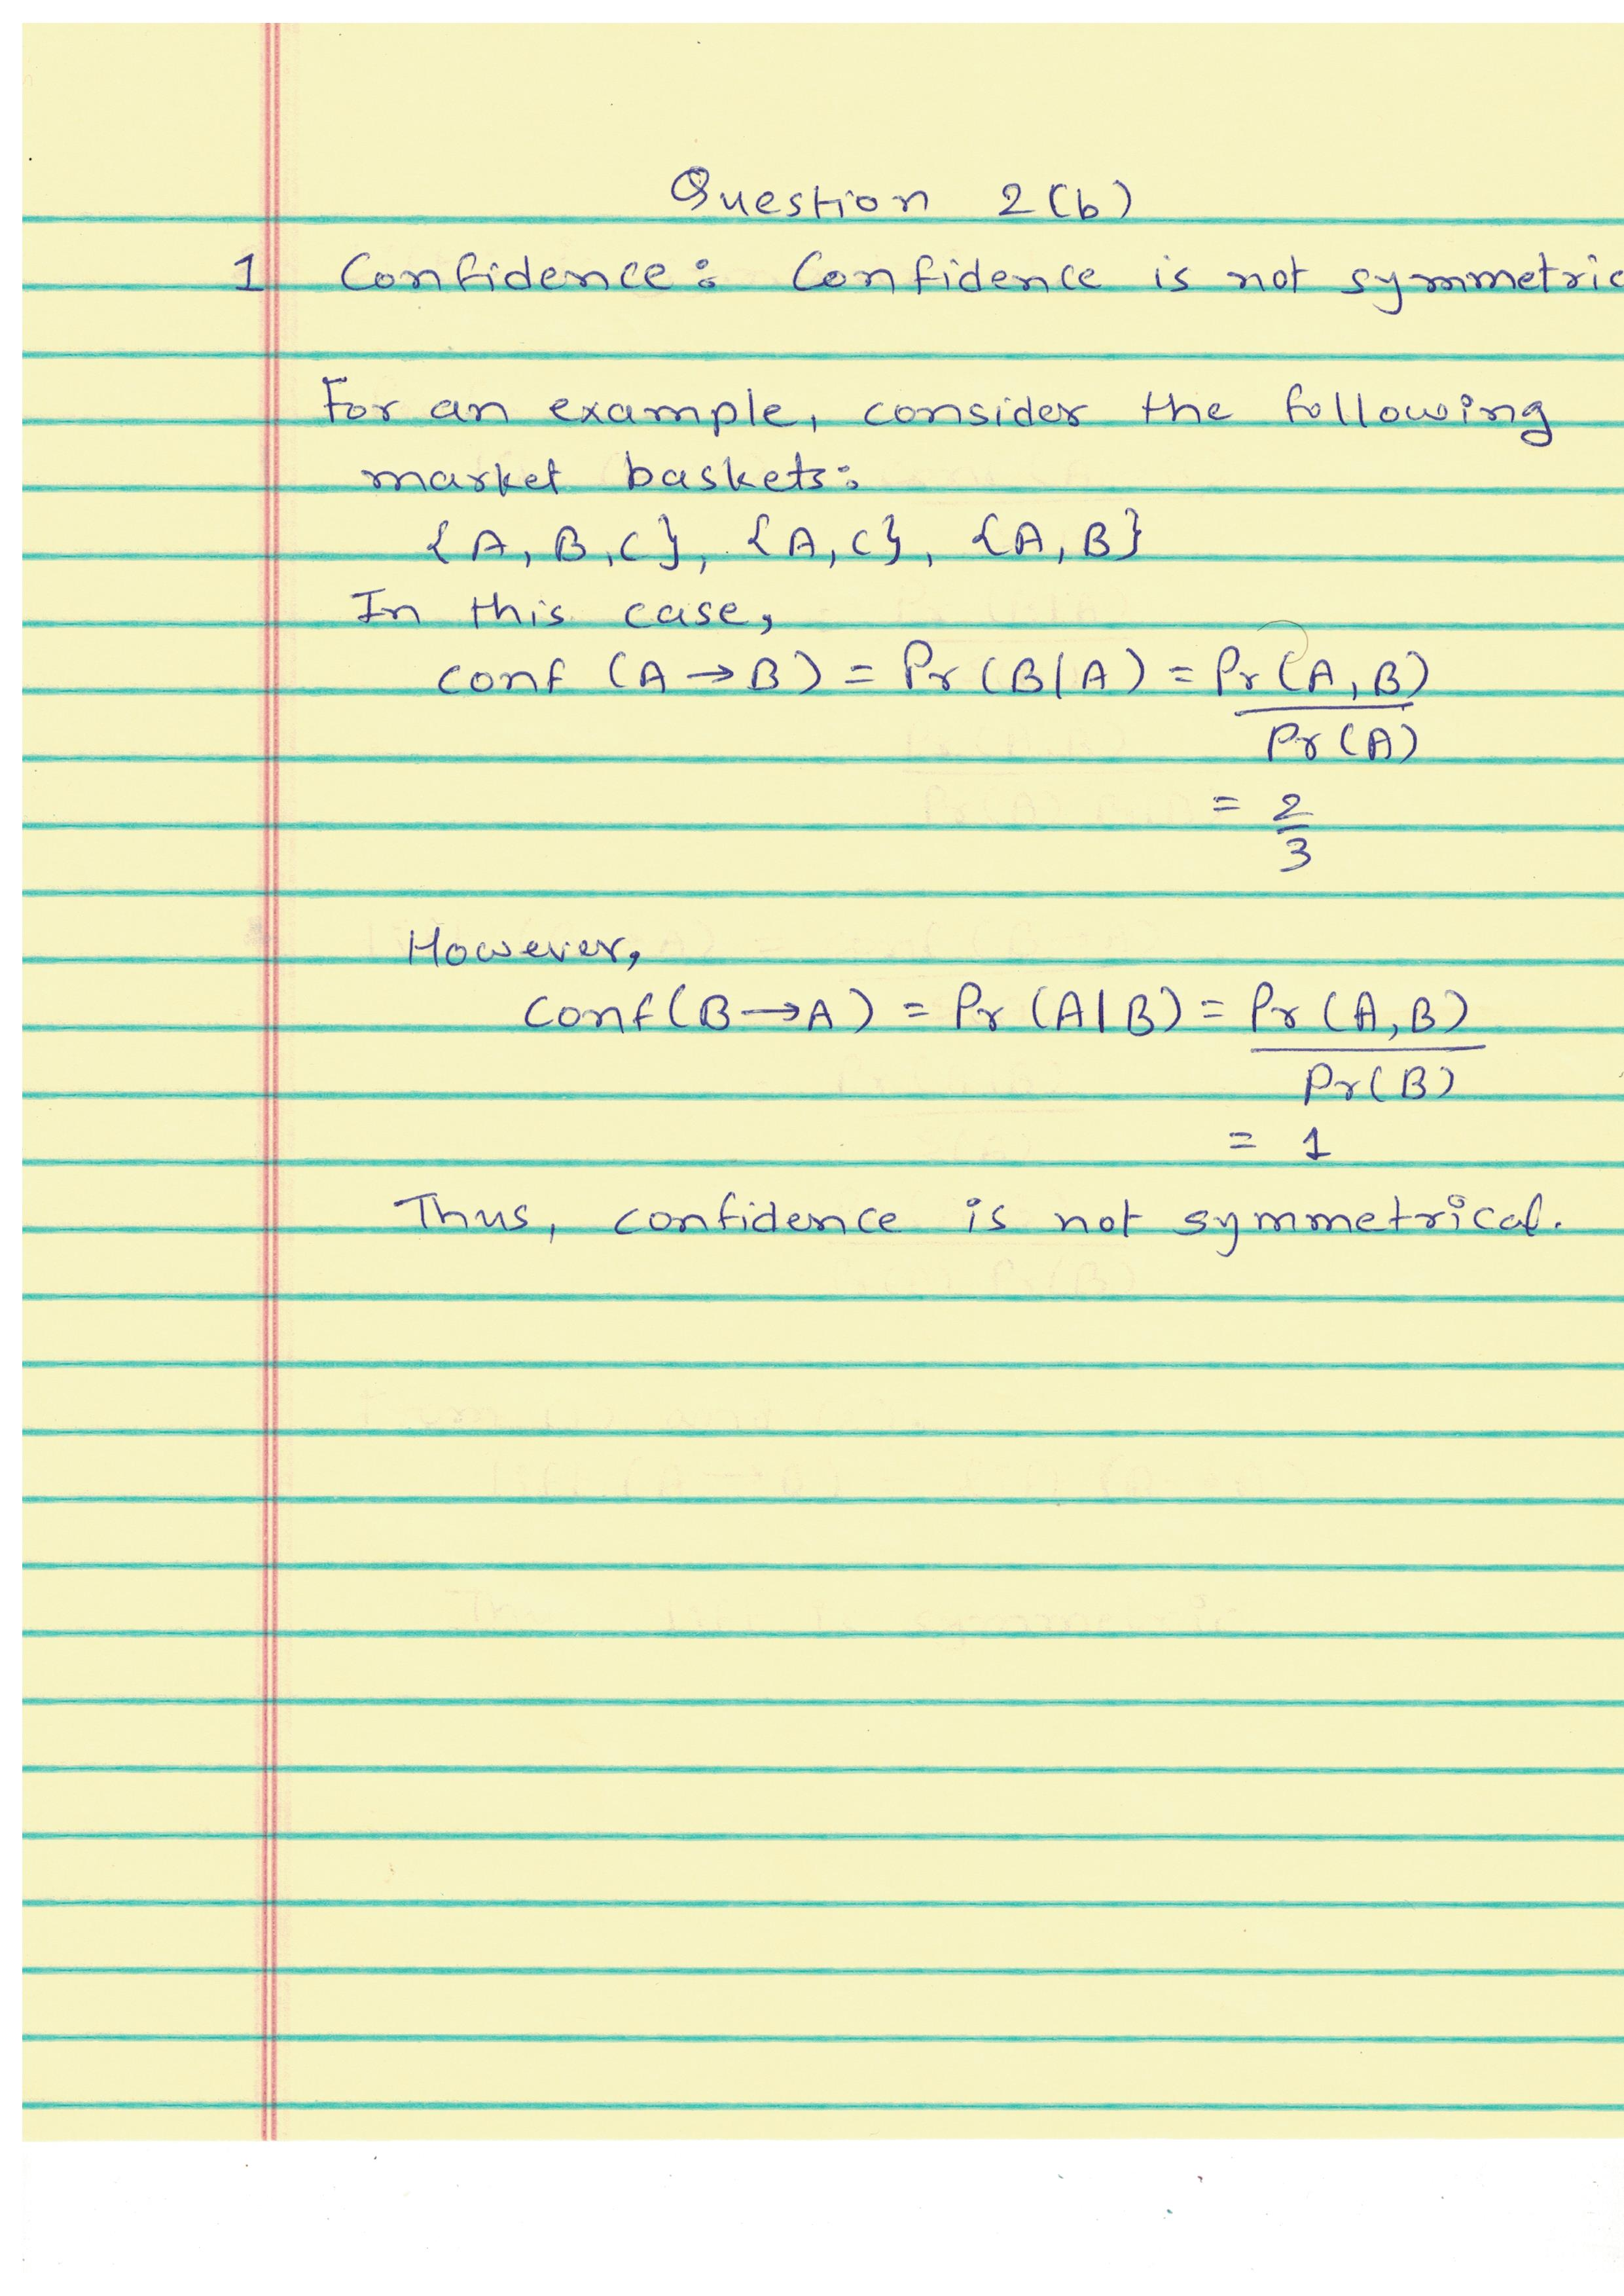 Question 2(b)
1 Confidence: Confidence is not symmetric
For an example, consider the following
market baskets:
{A, B, C}, {A, C}, {A, B}
In this case,
conf (A → B) = Pr (B|A) = Pr (A, B)
Pr (A)
= 2
3
However,
Conf(B → A) = Pr (A|B) = Pr (A, B)
Pr(B)
= 1
Thus, confidence is not symmetrical.